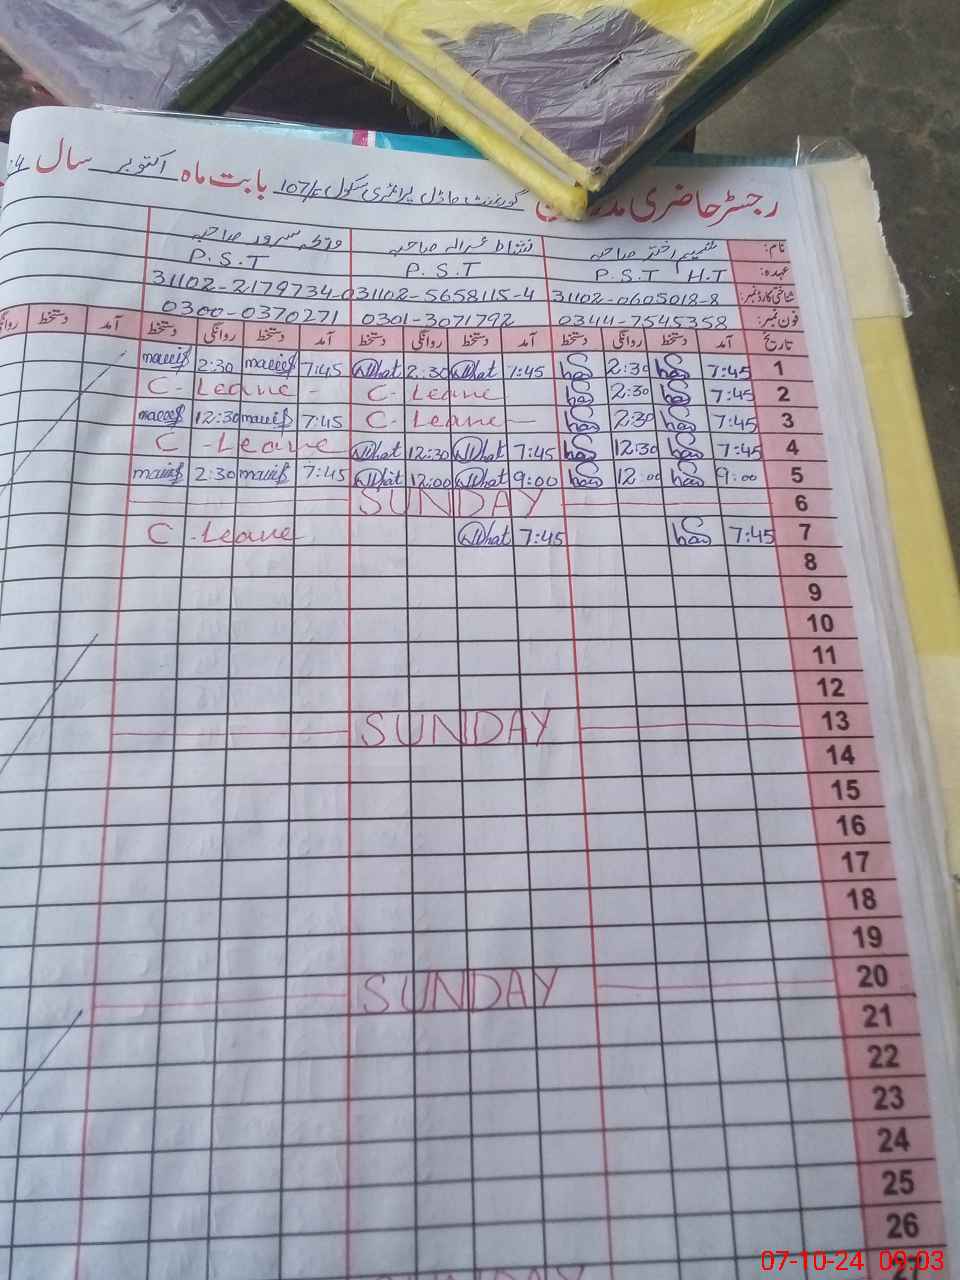 رجسٹر حاضری
گورنمنٹ ماڈل پرائمری سکول 107/ بابت ماہ اکتوبر سال
نام: تسنیم اختر صاحبہ نشاط صاحبہ سرور صاحبہ
عہدہ: P.S.T H.T P.S.T P.S.T
شناختی کارڈ نمبر: 31102-0605018-8 31102-5658115-4 31102-2179734-0
فون نمبر: 0344-7545358 0301-3071792 0300-0370271
تاریخ آمد دستخط روانگی دستخط آمد دستخط روانگی دستخط آمد دستخط روانگی دستخط آمد دستخط
1 7:45 2:30 7:45 2:30 7:45 2:30
2 7:45 2:30 C-Leave C-Leave -
3 7:45 2:30 C-Leave - 7:45 12:30
4 7:45 12:30 7:45 12:30 C-Leave
5 9:00 12:00 9:00 12:00 7:45 2:30
6 SUNDAY
7 7:45 7:45 C-Leave
8
9
10
11
12
13 SUNDAY
14
15
16
17
18
19
20 SUNDAY
21
22
23
24
25
26
27 SUNDAY
07-10-24 09:03